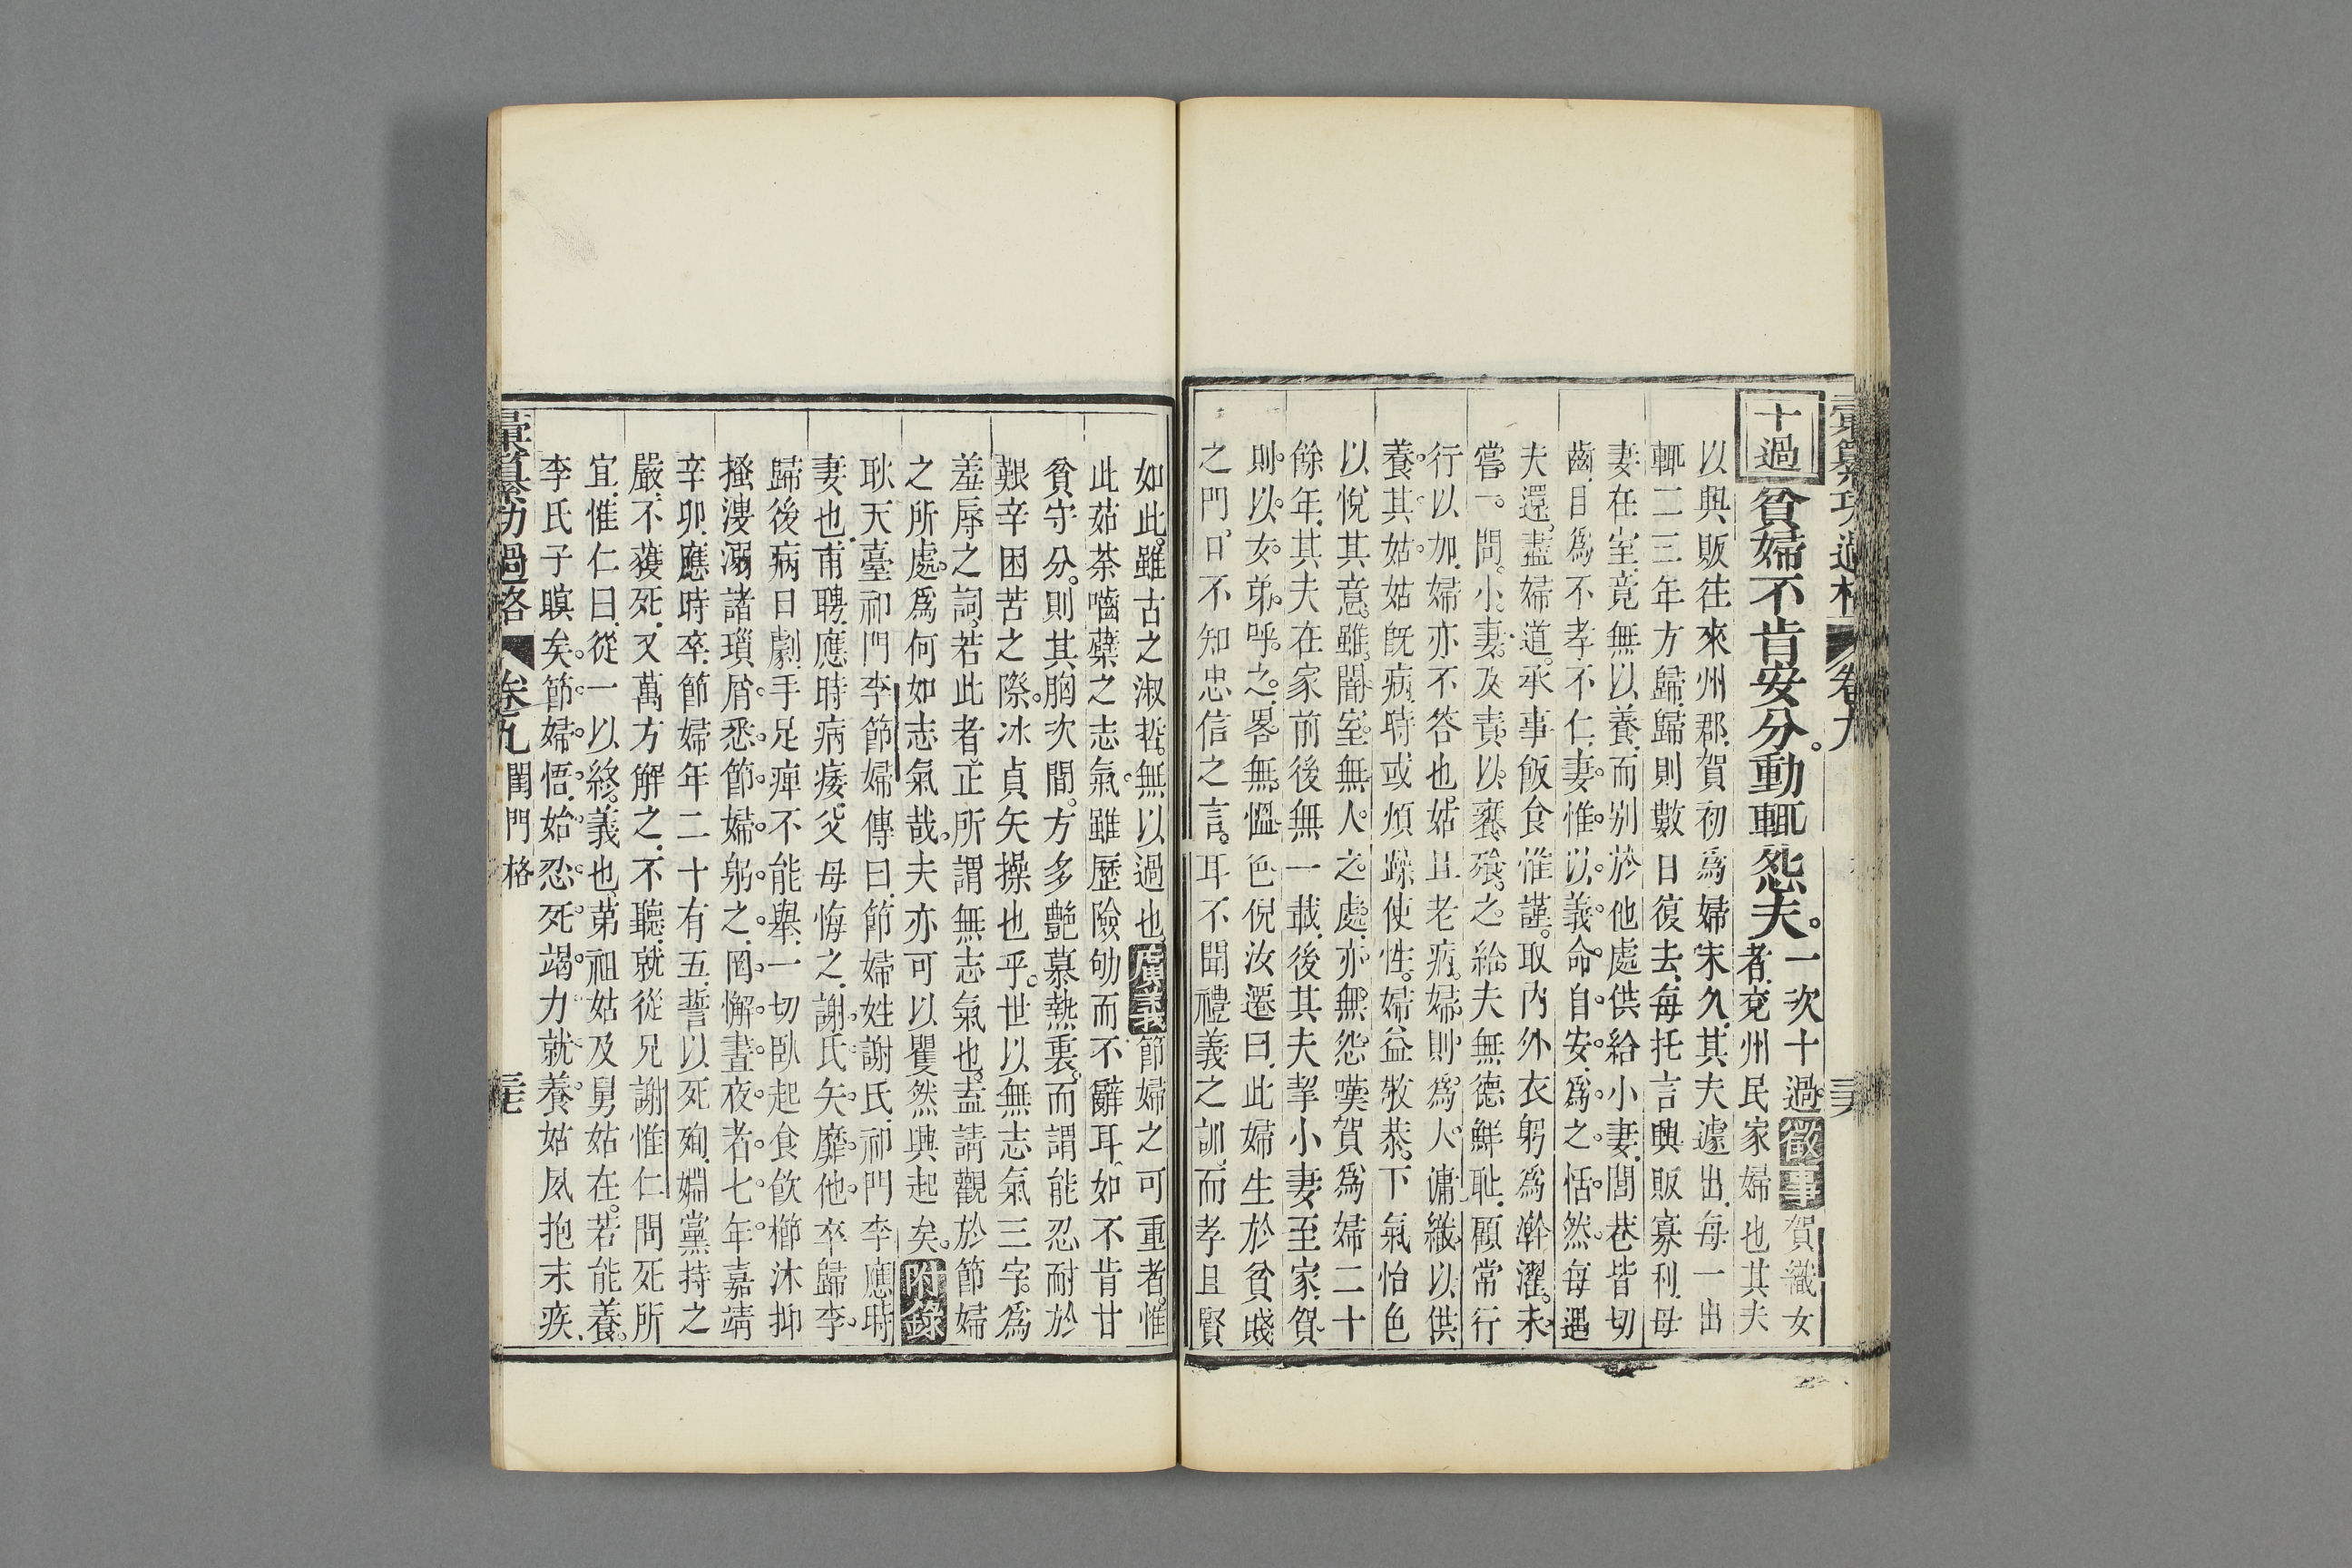 彙纂功過格 卷九
十過 貧婦不肯安分。動輒怨夫。一次十過。徵事賀織女
者。兗州民家婦也其夫
以興販往來州郡。賀初爲婦未久。其夫遽出。每一出
輒二三年方歸。歸則數日復去。每托言興販寡利。母
妻在室。竟無以養。而別於他處供給小妻。閭巷皆切
齒。目爲不孝不仁。妻惟以義命自安。爲之恬然。每遇
夫還。盡婦道。承事飯食惟謹。取内外衣躬爲澣濯。未
嘗一問小妻。及責以饔飧之給。夫無德鮮耻。顧常行
行以加。婦亦不答也。姑且老病。婦則爲人傭織。以供
養其姑。姑旣病。時或煩躁使性。婦益敬恭。下氣怡色
以悅其意。雖闇室無人之處。亦無怨嘆。賀爲婦二十
餘年。其夫在家前後無一載。後其夫挈小妻至家。賀
則以女弟呼之。畧無慍色。倪汝遷曰。此婦生於貧賤
之門。目不知忠信之言。耳不聞禮義之訓。而孝且賢
如此。雖古之淑哲。無以過也。廣義節婦之可重者。惟
此茹荼嚙蘗之志氣。雖歷險劬而不辭耳。如不肯甘
貧守分。則其胸次間。方多艷慕熱衷。而謂能忍耐於
艱辛困苦之際。冰貞矢操也乎。世以無志氣三字。爲
羞辱之詞。若此者。正所謂無志氣也。盍請觀於節婦
之所處。爲何如志氣哉。夫亦可以瞿然興起矣。附錄
耿天臺祁門李節婦傳曰。節婦姓謝氏。祁門李應時
妻也。甫聘。應時病痿。父母悔之。謝氏矢靡他。卒歸李。
歸後病日劇。手足痺不能舉。一切臥起食飲櫛沐抑
搔溲溺諸瑣屑。悉節婦躬之。罔懈晝夜者七年。嘉靖
辛卯。應時卒。節婦年二十有五。誓以死殉。婣黨持之
嚴。不獲死。又萬方解之。不聽。就從兄謝惟仁問死所
宜。惟仁曰。從一以終。義也。第祖姑及舅姑在。若能養。
李氏子瞑矣。節婦悟。始忍死竭力就養。姑夙抱末疾。
彙纂功過格 卷九 閨門格